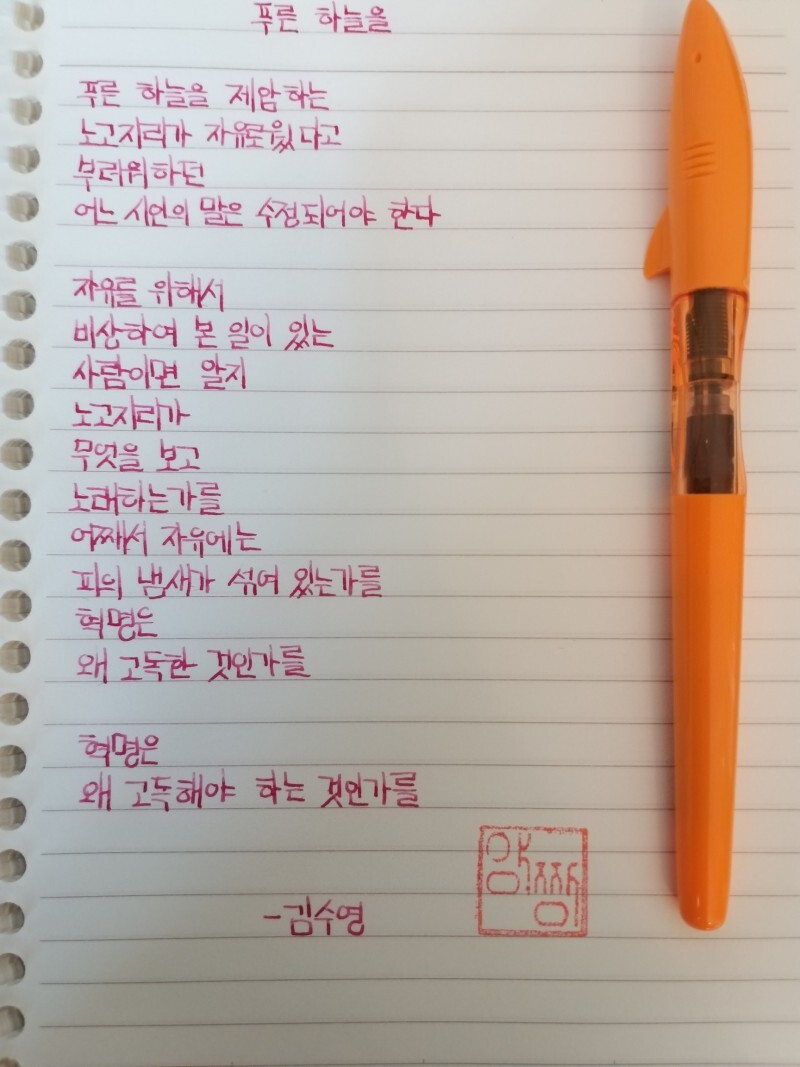 푸른 하늘을
푸른 하늘을 제압하는
노고지리가 자유로웠다고
부러워하던
어느 시인의 말은 수정되어야 한다
자유를 위해서
비상하여 본 일이 있는
사람이면 알지
노고지리가
무엇을 보고
노래하는가를
어째서 자유에는
피의 냄새가 섞여 있는가를
혁명은
왜 고독한 것인가를
혁명은
왜 고독해야 하는 것인가를
-김수영